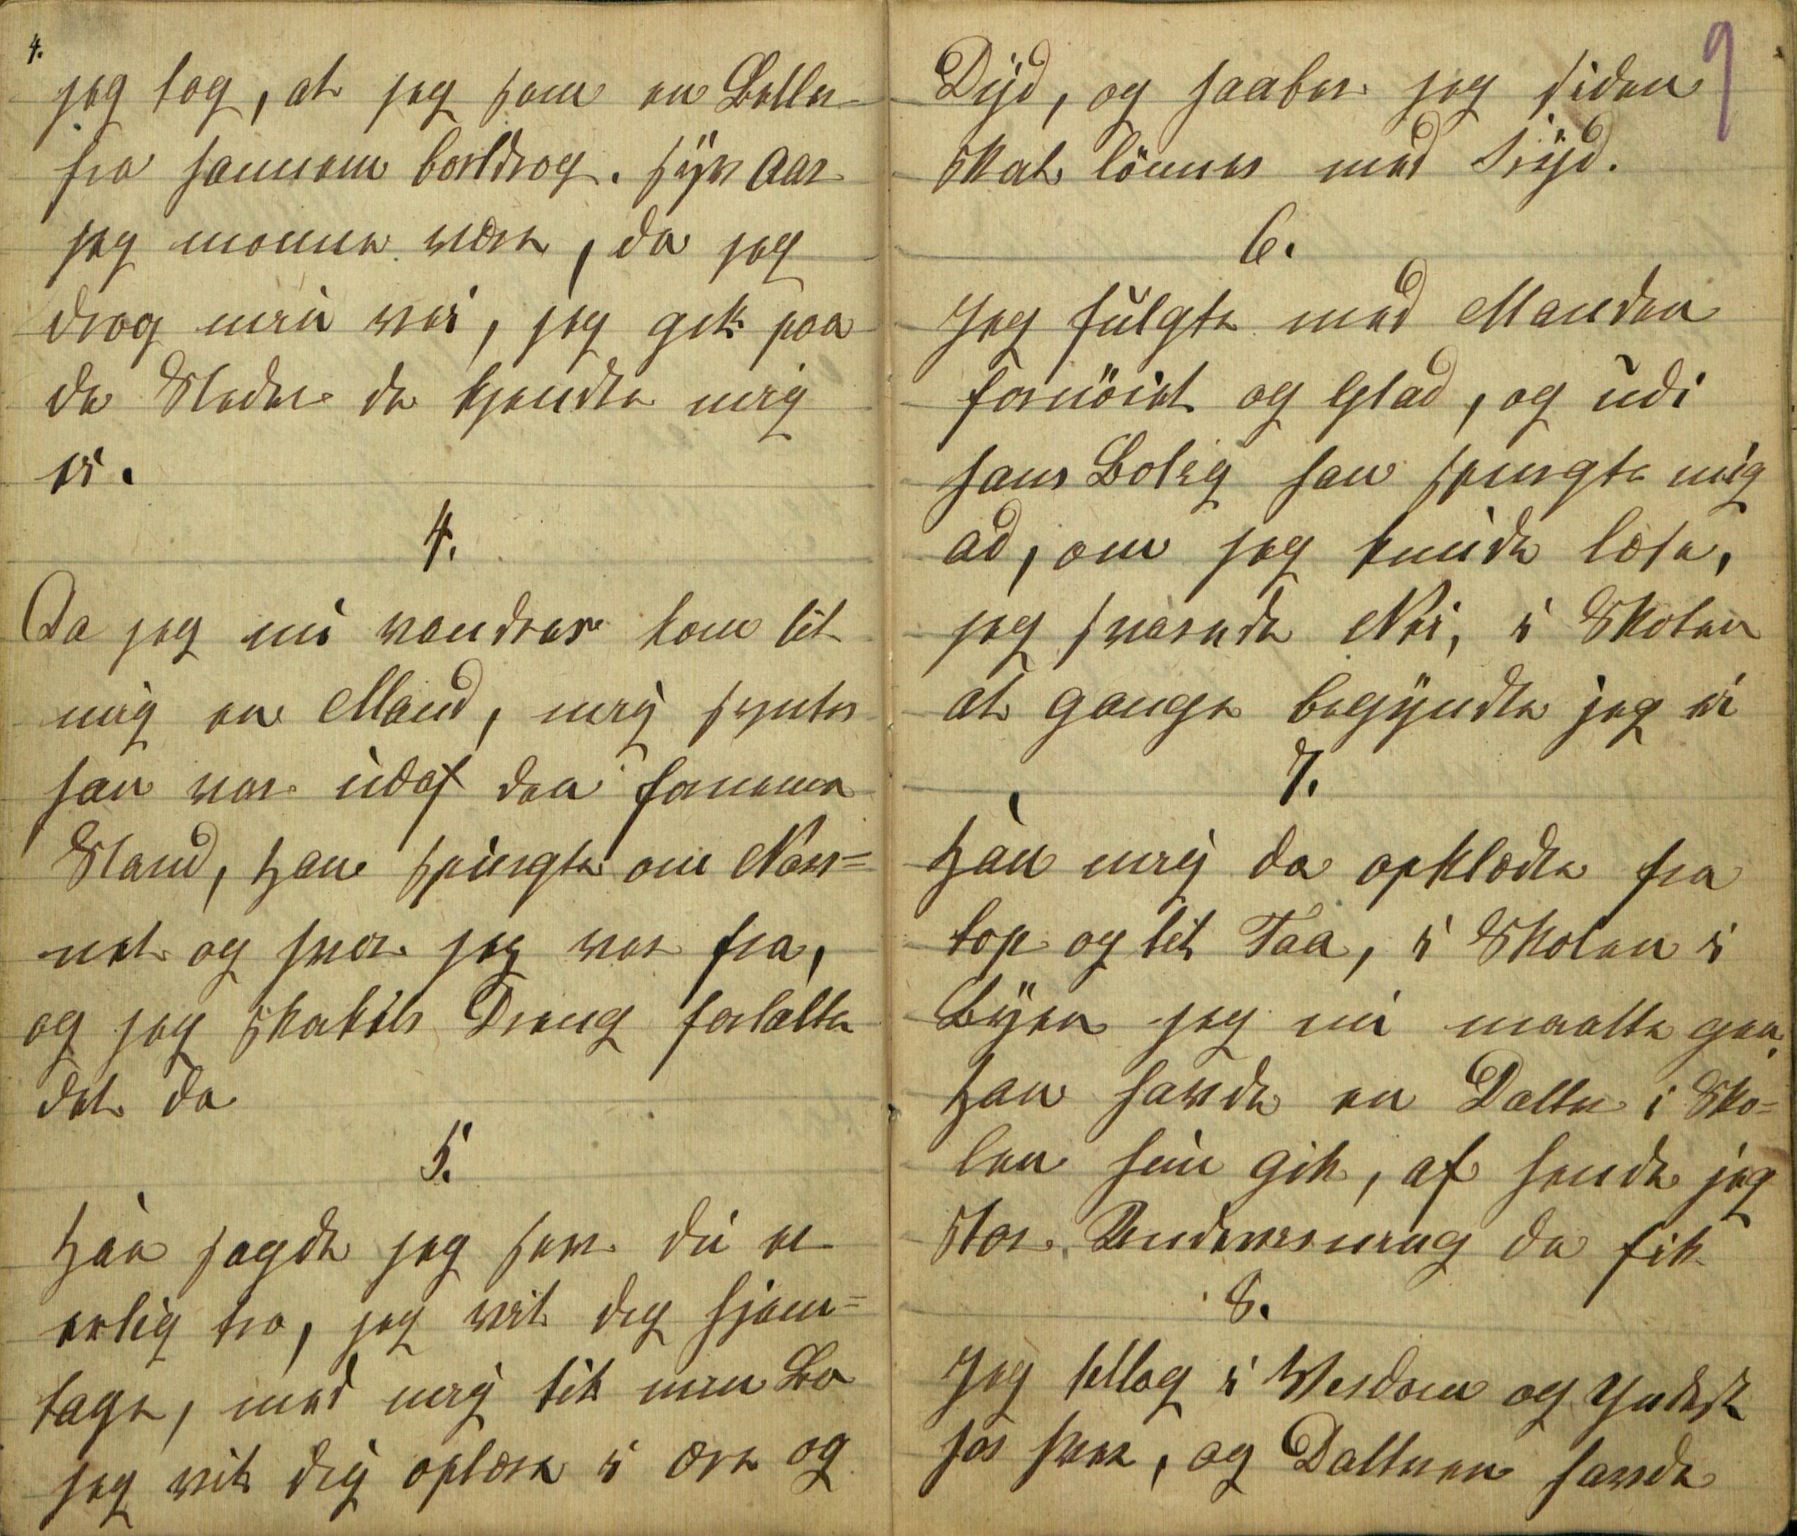 4.
jeg tog, at jeg som en Betler
fra hannem bortdrog. syv Aar
jeg monne være, da jeg
drog min vei, jeg gik paa
de Steder de kjendte mig
ei.
4.
Da jeg nu vandrer kom til
mig en Mand, mig syntes
han var udaf den fornemme
Stand, Han spurgte om Nav=
net og hvor jeg var fra,
og jeg Skakels Dreng fortalte
det da
5.
Han sagde jeg ser du er
erlig tro, jeg vil dig hjem=
tage, med mig til min Bo
jeg vil dig oplære i ære og
9
Dyd, og haaber jeg siden
skal lönnes med Fryd.
6.
Jeg fulgte med Manden
fornöiet og Glad, og udi
hans Bolig han spurgte mig
ad, om jeg kunde læse,
jeg svarede Nei, i Skolen
at gange begyndte jeg ei
7.
Han mig da opklædte fra
top og til Taa, i Skolen i
Byen jeg nu maatte gaa.
Han havde en Datter i Sko=
len hun gik, af hende jeg
stor Underviisning da fik
8.
Jeg tiltog i Visdom og Yndest
hos hver, og Datteren havde